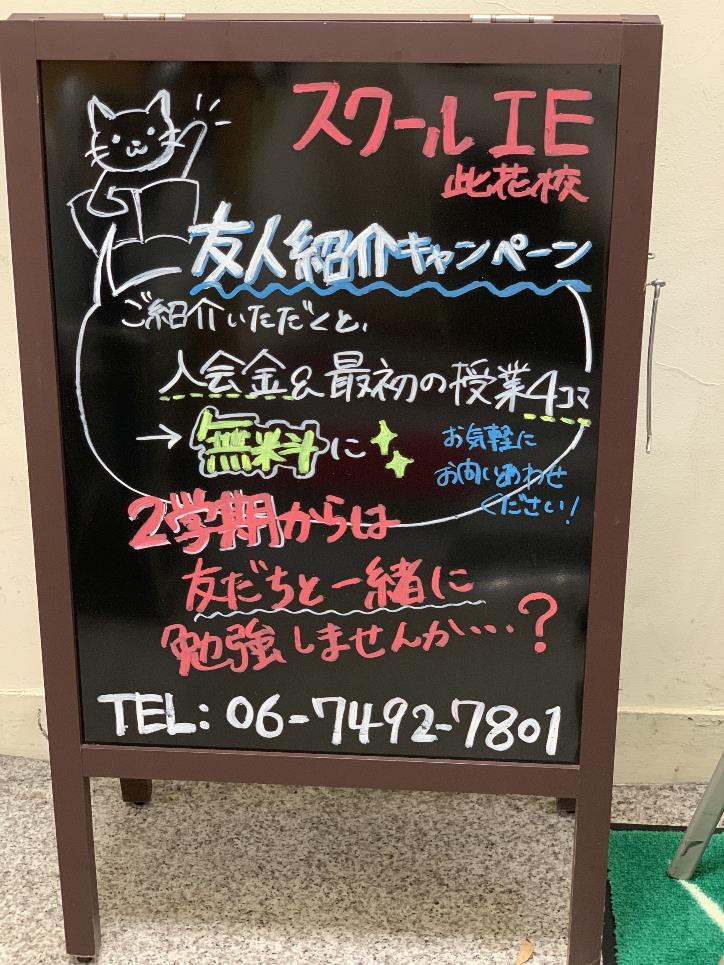 スクールIE
此花校
友人紹介キャンペーン
ご紹介いただくと、
入会金&最初の授業4コマ
→無料に
お気軽に
お問いあわせ
ください!
2学期からは
友だちと一緒に
勉強しませんか…?
TEL:06-7492-7801